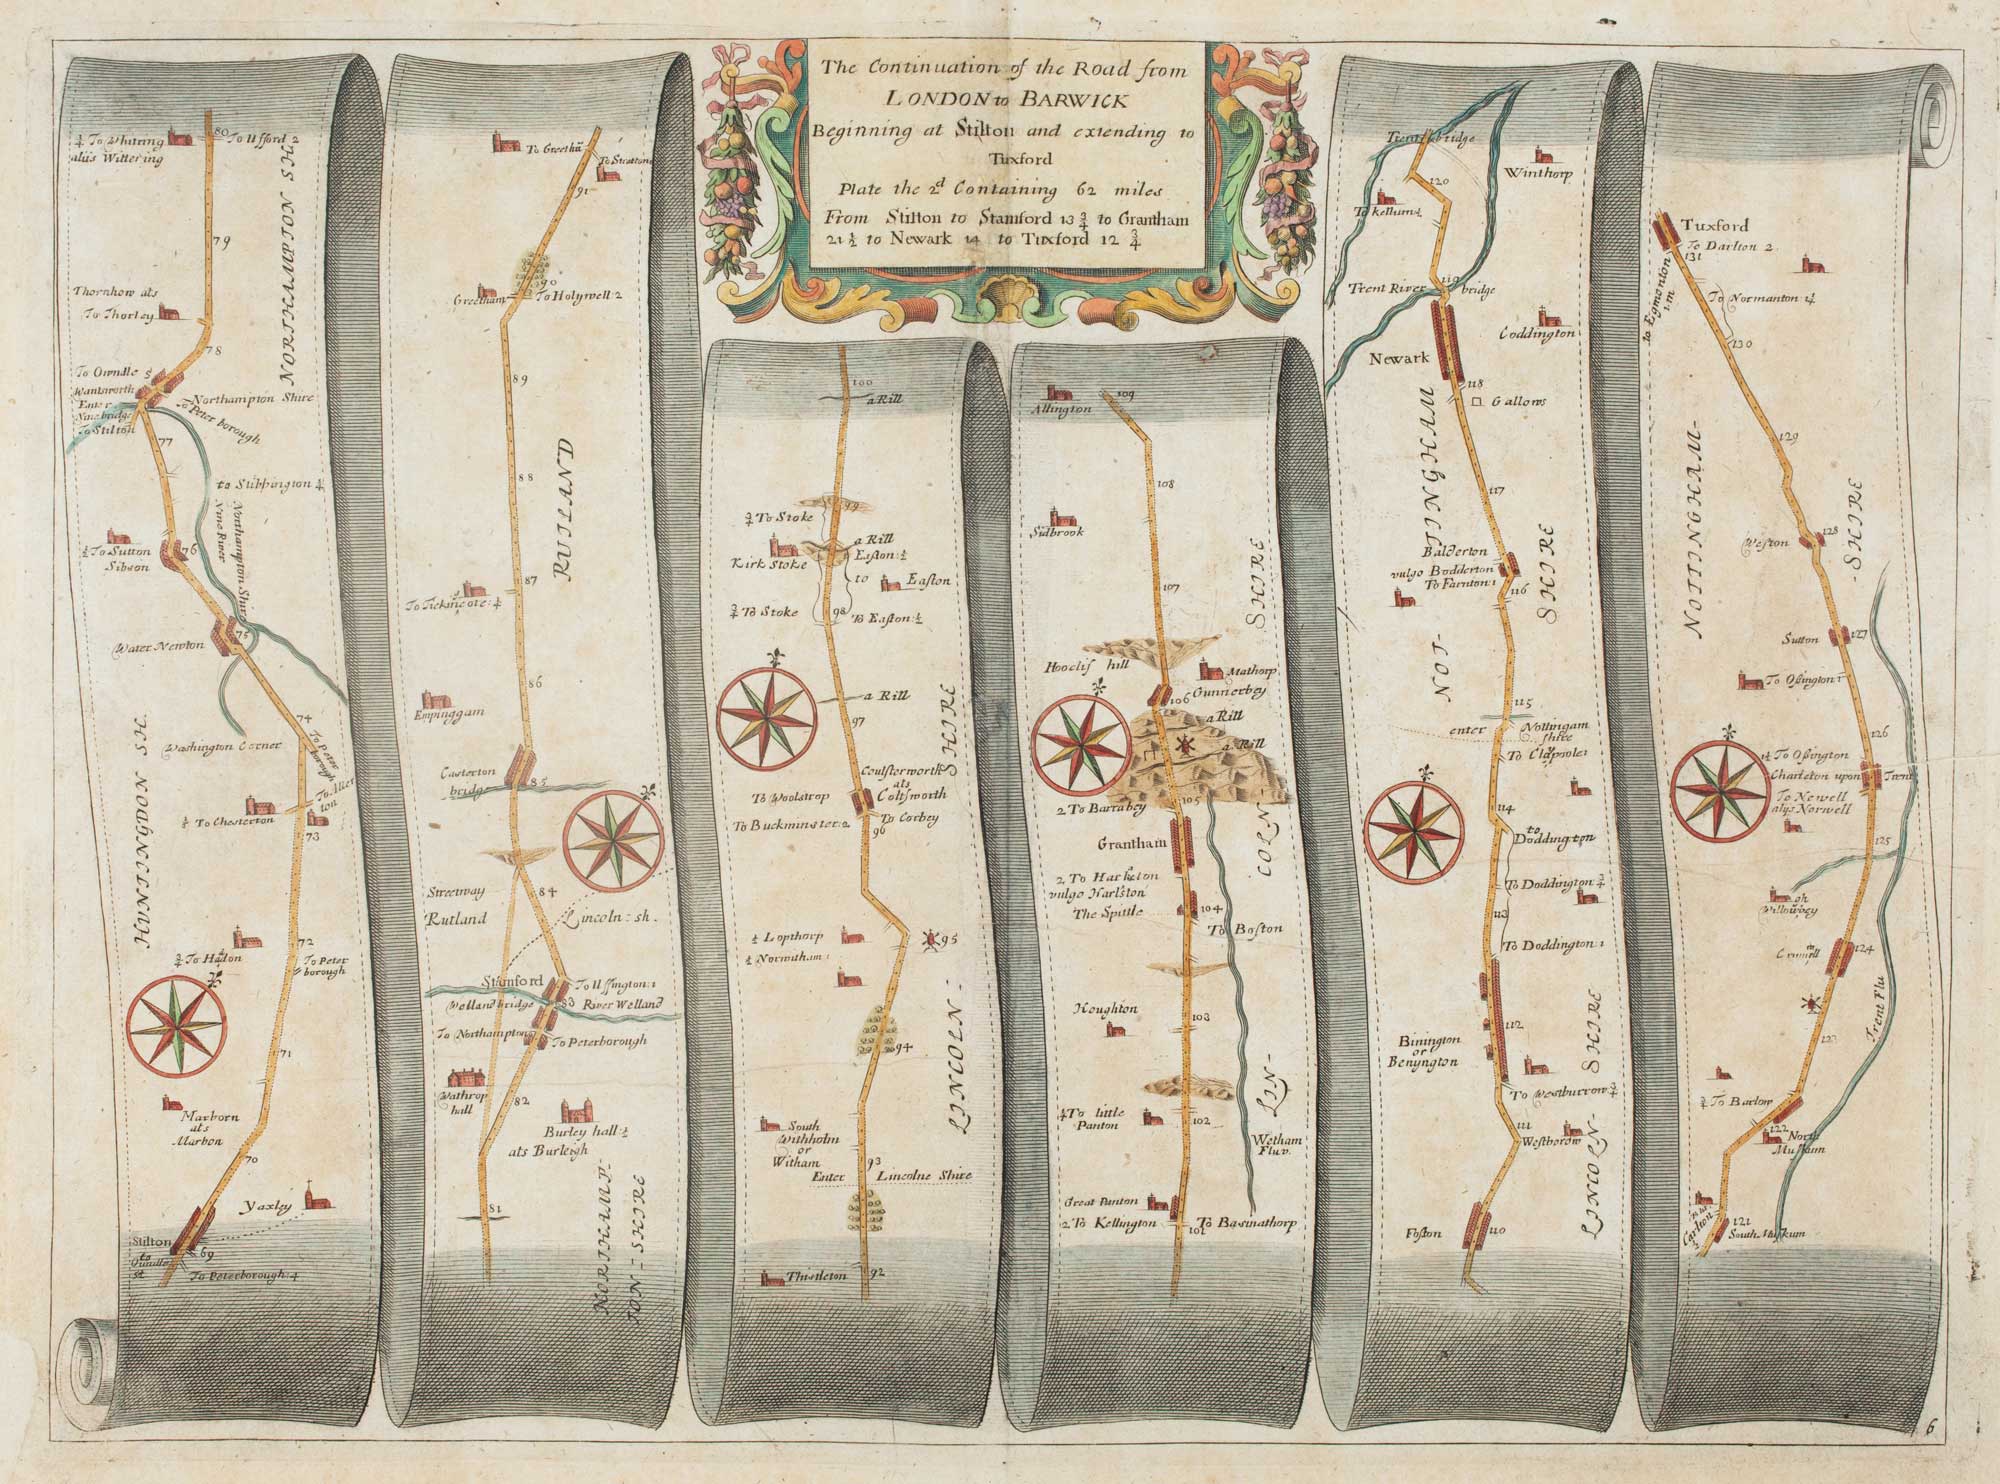 The Continuation of the Road from
LONDON to BARWICK
Beginning at Stilton and extending to
Tuxford
Plate the 2d Containing 62 miles
From Stilton to Stamford 13 3/4 to Grantham
21 1/2 to Newark 14 to Tuxford 12 3/4
80
To Ufford 2
To Whitring
aliis Wittering
NORTHAMPTON SH.
79
Thornhow als
To Thorley
78
To Owndle 5
Wantsworth
Northampton Shire
Enter
Nine bridge
To Peter borough
To Stilton
77
to Stibbington 1/4
Northampton Shire
Nine River
76
1/2 To Sutton
Sibson
75
Water Newton
74
To Peterborough
Washington Corner
To Aller
ton
To Chesterton
73
HUNTINGDON SH.
72
To Peter
borough
3/4 To Hadon
71
Marborn
als
Marbon
70
Yaxley
Stilton
69
to
Oundle
To Peterborough 4
To Greetha
To Stratton
91
90
Greetham
To Holywell 2
89
88
RUTLAND
87
To Tickincote 1/4
86
Empinggam
Casterton
bridge
85
84
Streetway
Rutland
Lincoln sh.
Stamford
To Uffington 1
Welland bridge
83
River Welland
To Northampton
To Peterborough
Wathrop
hall
82
Burley hall 1/2
als Burleigh
81
NORTHAMP
TON=SHIRE
100
a Rill
99
3/4 To Stoke
a Rill
Kirk Stoke
Easton 1/2
to
Easton
98
3/4 To Stoke
To Easton 1/2
a Rill
97
Coulsterworth
als
Coltsworth
To Woolstrop
To Buckminster 2
To Corbey
96
SHIRE
95
1/2 Lopthorp
1/4 Norwitham 1
94
LINCOLN=
South
Withholm
or
Witham
93
Enter
Lincolne Shire
92
Thistleton
109
Allington
108
Sidbrook
107
SHIRE
Hooclif hill
Mathorp
Gunnerbey
106
a Rill
a Rill
105
2 To Barrabey
Grantham
COLN-
2 To Harleton
vulgo Harlston
104
The Spittle
To Boston
Houghton
103
LIN-
1/4 To little
Panton
102
Wetham
Fluv.
Great Panton
2 To Kellington
101
To Basinathorp
Trent bridge
Winthorp
120
To Kellum
119
Trent River
bridge
Coddington
Newark
118
Gallows
TINGHAM
117
Balderton
vulgo Bodderton
To Farnton 1
116
SHIRE
NOT-
115
enter
Nottingam
shire
To Claypole 1
114
to
Doddington
To Doddington 3/4
113
To Doddington 1
112
Binington
or
Benyngton
SHIRE
To Westburrow 3/4
111
Westborow
LINCOLN-
Foston
110
Tuxford
To Darlton 2
131
to Egmonton
1 m
To Normanton 1/4
130
129
NOTTINGHAM-
128
Weston
-SHIRE
Sutton
127
To Osington 1
126
1 1/2 To Osington
Charleton upon
Trent
To Newell
alys Norwell
125
Willowbey
Crumell
124
123
Trent Flu
3/4 To Barlow
122
North
Muskum
Carlton
121
South Muskum
6